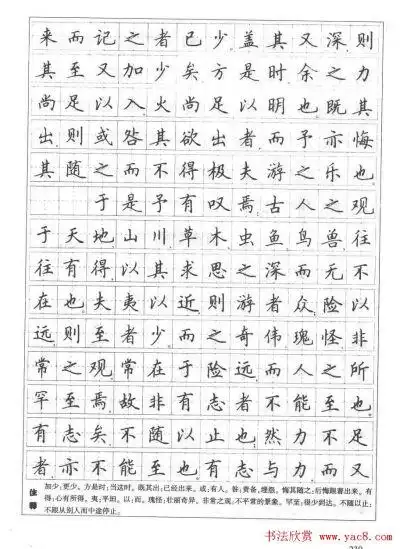 来而记之者已少盖其又深则
其至又加少矣方是时余之力
尚足以入火尚足以明也既其
出则或咎其欲出者而予亦悔
其随之而不得极夫游之乐也
于是予有叹焉古人之观
于天地山川草木虫鱼鸟兽往
往有得以其求思之深而无不
在也夫夷以近则游者众险以
远则至者少而之奇伟瑰怪非
常之观常在于险远而人之所
罕至焉故非有志者不能至也
有志矣不随以止也然力不足
者亦不能至也有志与力而又
注释
加少：更少。方是时：当这时。既其出：已经出来。或：有人。咎：责备，埋怨。悔其随之：后悔跟着出来。有
得：心有所得。夷：平坦。以：而。瑰怪：壮丽奇异。非常之观：不平常的景象。罕至：很少到达。不随以止：
不跟从别人而中途停止。
书法欣赏 www.yac8.com